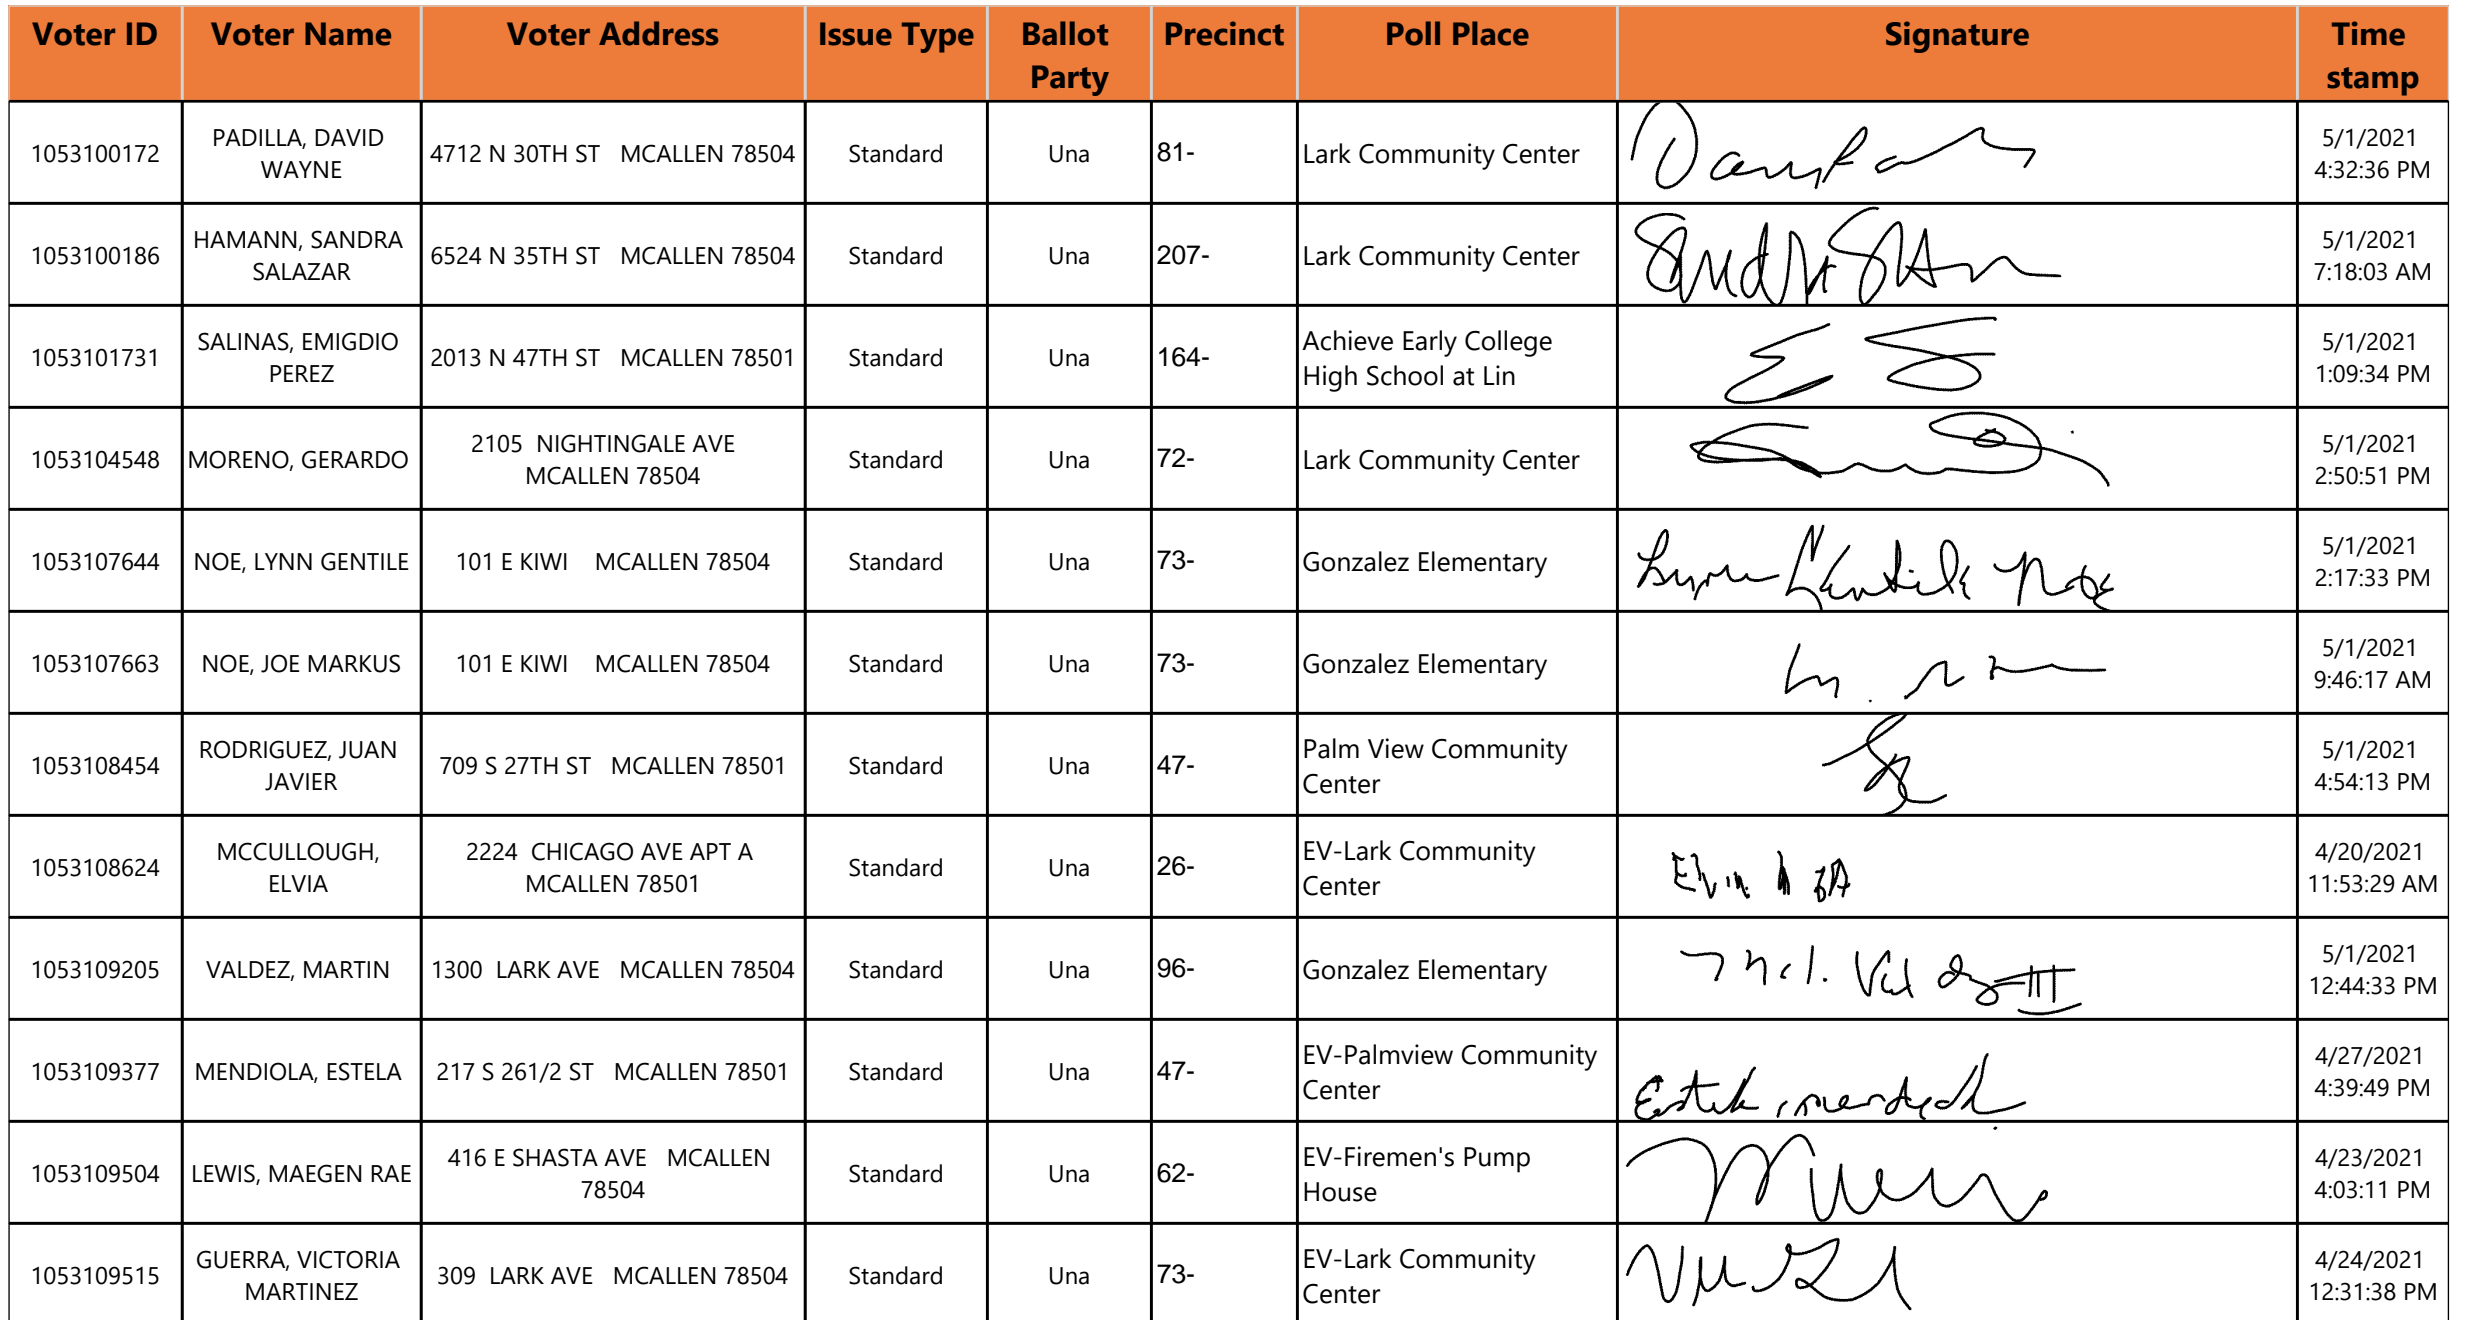 Voter ID Voter Name Voter Address Issue Type Ballot Party Precinct Poll Place Signature Time stamp
1053100172 PADILLA, DAVID WAYNE 4712 N 30TH ST MCALLEN 78504 Standard Una 81- Lark Community Center 5/1/2021 4:32:36 PM
1053100186 HAMANN, SANDRA SALAZAR 6524 N 35TH ST MCALLEN 78504 Standard Una 207- Lark Community Center 5/1/2021 7:18:03 AM
1053101731 SALINAS, EMIGDIO PEREZ 2013 N 47TH ST MCALLEN 78501 Standard Una 164- Achieve Early College High School at Lin 5/1/2021 1:09:34 PM
1053104548 MORENO, GERARDO 2105 NIGHTINGALE AVE MCALLEN 78504 Standard Una 72- Lark Community Center 5/1/2021 2:50:51 PM
1053107644 NOE, LYNN GENTILE 101 E KIWI MCALLEN 78504 Standard Una 73- Gonzalez Elementary Lynn Gentile Noe 5/1/2021 2:17:33 PM
1053107663 NOE, JOE MARKUS 101 E KIWI MCALLEN 78504 Standard Una 73- Gonzalez Elementary 5/1/2021 9:46:17 AM
1053108454 RODRIGUEZ, JUAN JAVIER 709 S 27TH ST MCALLEN 78501 Standard Una 47- Palm View Community Center 5/1/2021 4:54:13 PM
1053108624 MCCULLOUGH, ELVIA 2224 CHICAGO AVE APT A MCALLEN 78501 Standard Una 26- EV-Lark Community Center 4/20/2021 11:53:29 AM
1053109205 VALDEZ, MARTIN 1300 LARK AVE MCALLEN 78504 Standard Una 96- Gonzalez Elementary 5/1/2021 12:44:33 PM
1053109377 MENDIOLA, ESTELA 217 S 261/2 ST MCALLEN 78501 Standard Una 47- EV-Palmview Community Center 4/27/2021 4:39:49 PM
1053109504 LEWIS, MAEGEN RAE 416 E SHASTA AVE MCALLEN 78504 Standard Una 62- EV-Firemen's Pump House 4/23/2021 4:03:11 PM
1053109515 GUERRA, VICTORIA MARTINEZ 309 LARK AVE MCALLEN 78504 Standard Una 73- EV-Lark Community Center 4/24/2021 12:31:38 PM